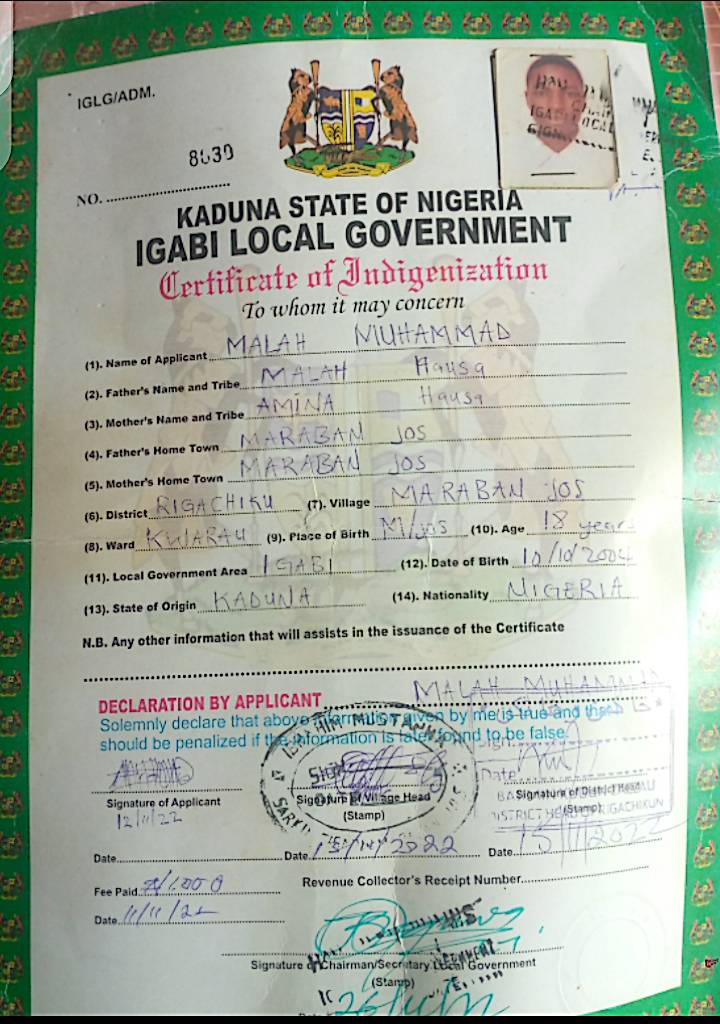 IGLG/ADM.
NO. 8039
KADUNA STATE OF NIGERIA
IGABI LOCAL GOVERNMENT
Certificate of Indigenization
To whom it may concern
(1). Name of Applicant MALAH MUHAMMAD
(2). Father's Name and Tribe MALAH Hausa
(3). Mother's Name and Tribe AMINA Hausa
(4). Father's Home Town MARABAN JOS
(5). Mother's Home Town MARABAN JOS
(6). District RIGACHIKU (7). Village MARABAN JOS
(8). Ward KWARAU (9). Place of Birth M/Jos (10). Age 18 years
(11). Local Government Area IGABI (12). Date of Birth 10/10/2004
(13). State of Origin KADUNA (14). Nationality NIGERIA
N.B. Any other information that will assists in the issuance of the Certificate
MALAH MUHAMMAD
DECLARATION BY APPLICANT
Solemnly declare that above information given by me is true and that
should be penalized if the information is later found to be false.
Sign
Date
Signature of Applicant Signature of Village Head Signature of District Head
(Stamp) (Stamp)
DISTRICT HEAD OF RIGACHIKUN
12/11/22
Date Date 15/11/2022 Date 15/11/2022
Fee Paid ₦1000 Revenue Collector's Receipt Number
Date 11/11/22
Signature of Chairman/Secretary Local Government
(Stamp)